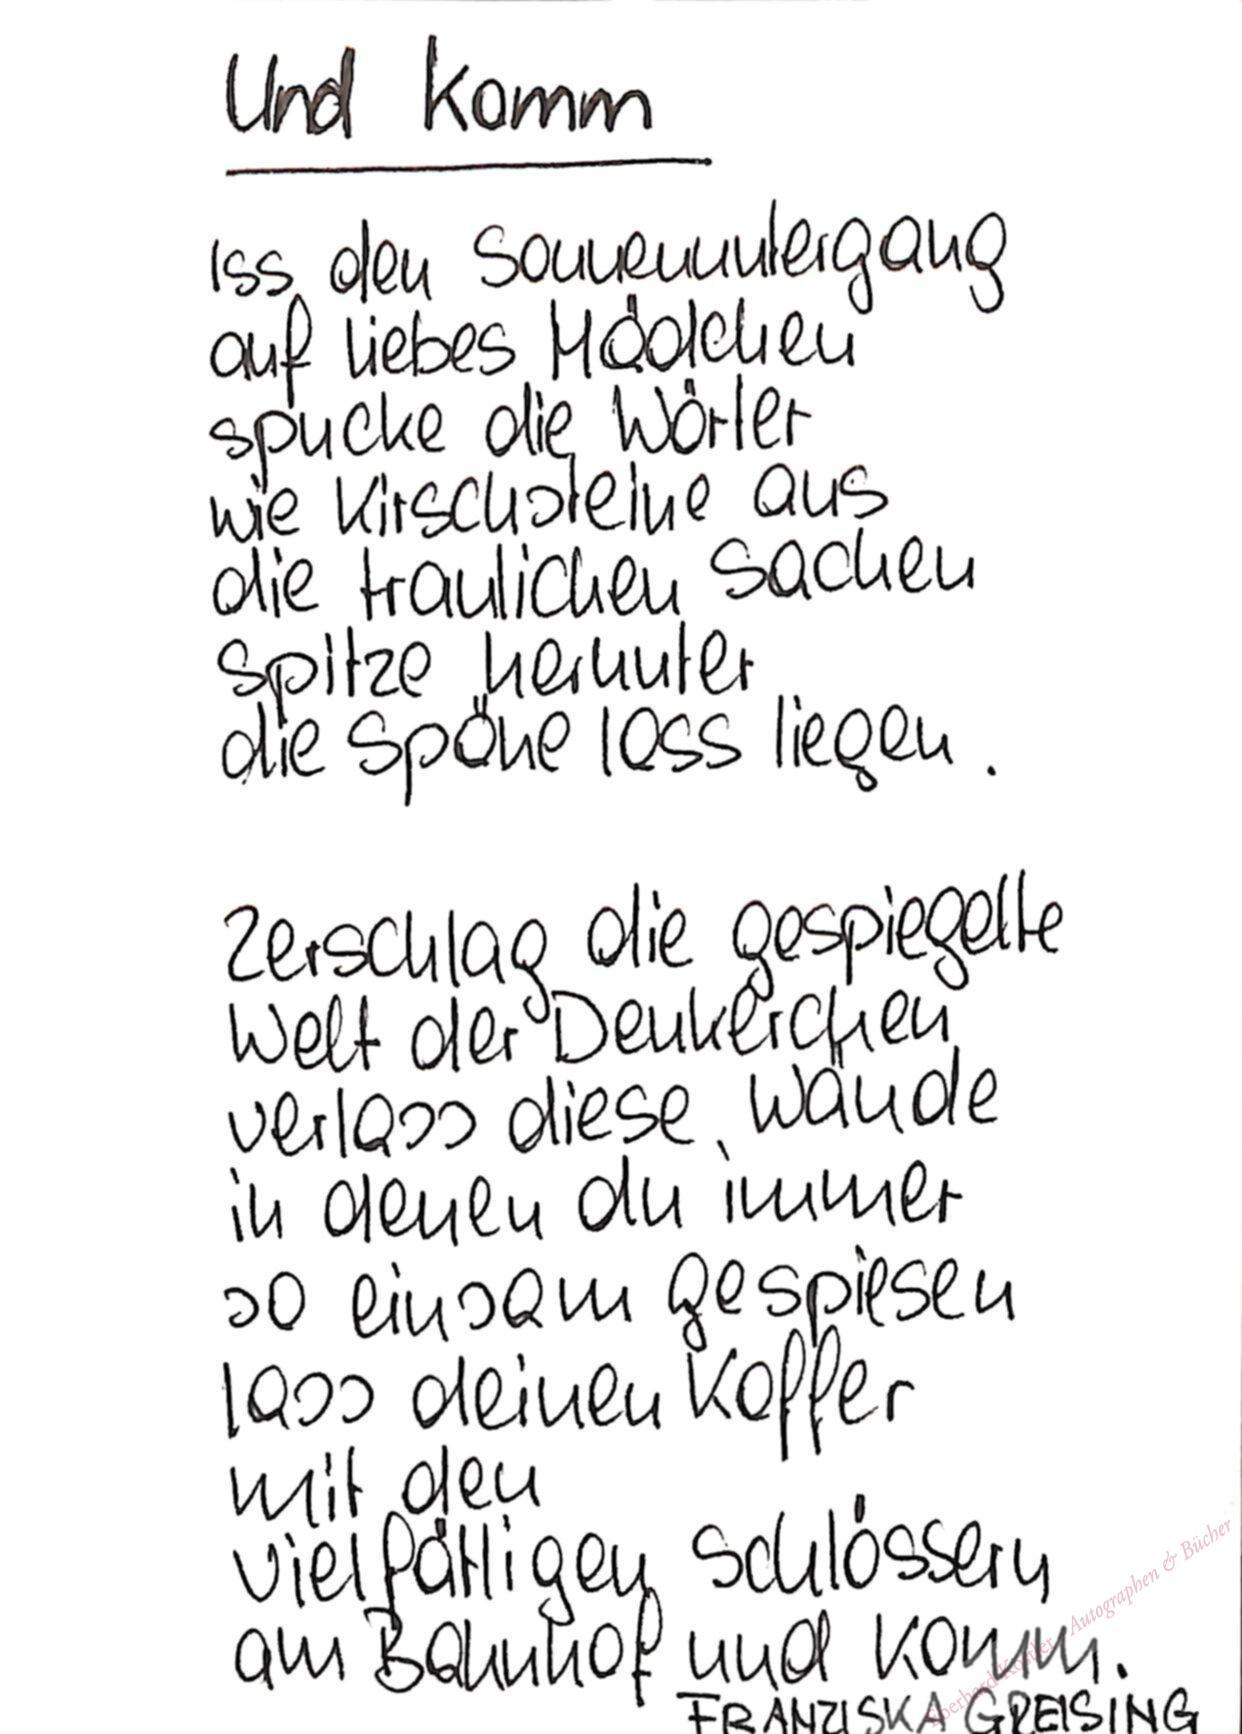 Und komm
Iss den Sonnenuntergang
auf liebes Mädchen
spucke die Wörter
wie Kirschsteine aus
die traulichen Sachen
spitze herunter
die Späne lass liegen.
Zerschlag die gespiegelte
Welt der Denkerchen
verlass diese Wände
in denen du immer
so einsam gespiesen
lass deinen Koffer
mit den
vielfältigen Schlössern
am Bahnhof und komm.
FRANZISKA GREISING
Eberhard Köstler Autographen & Bücher